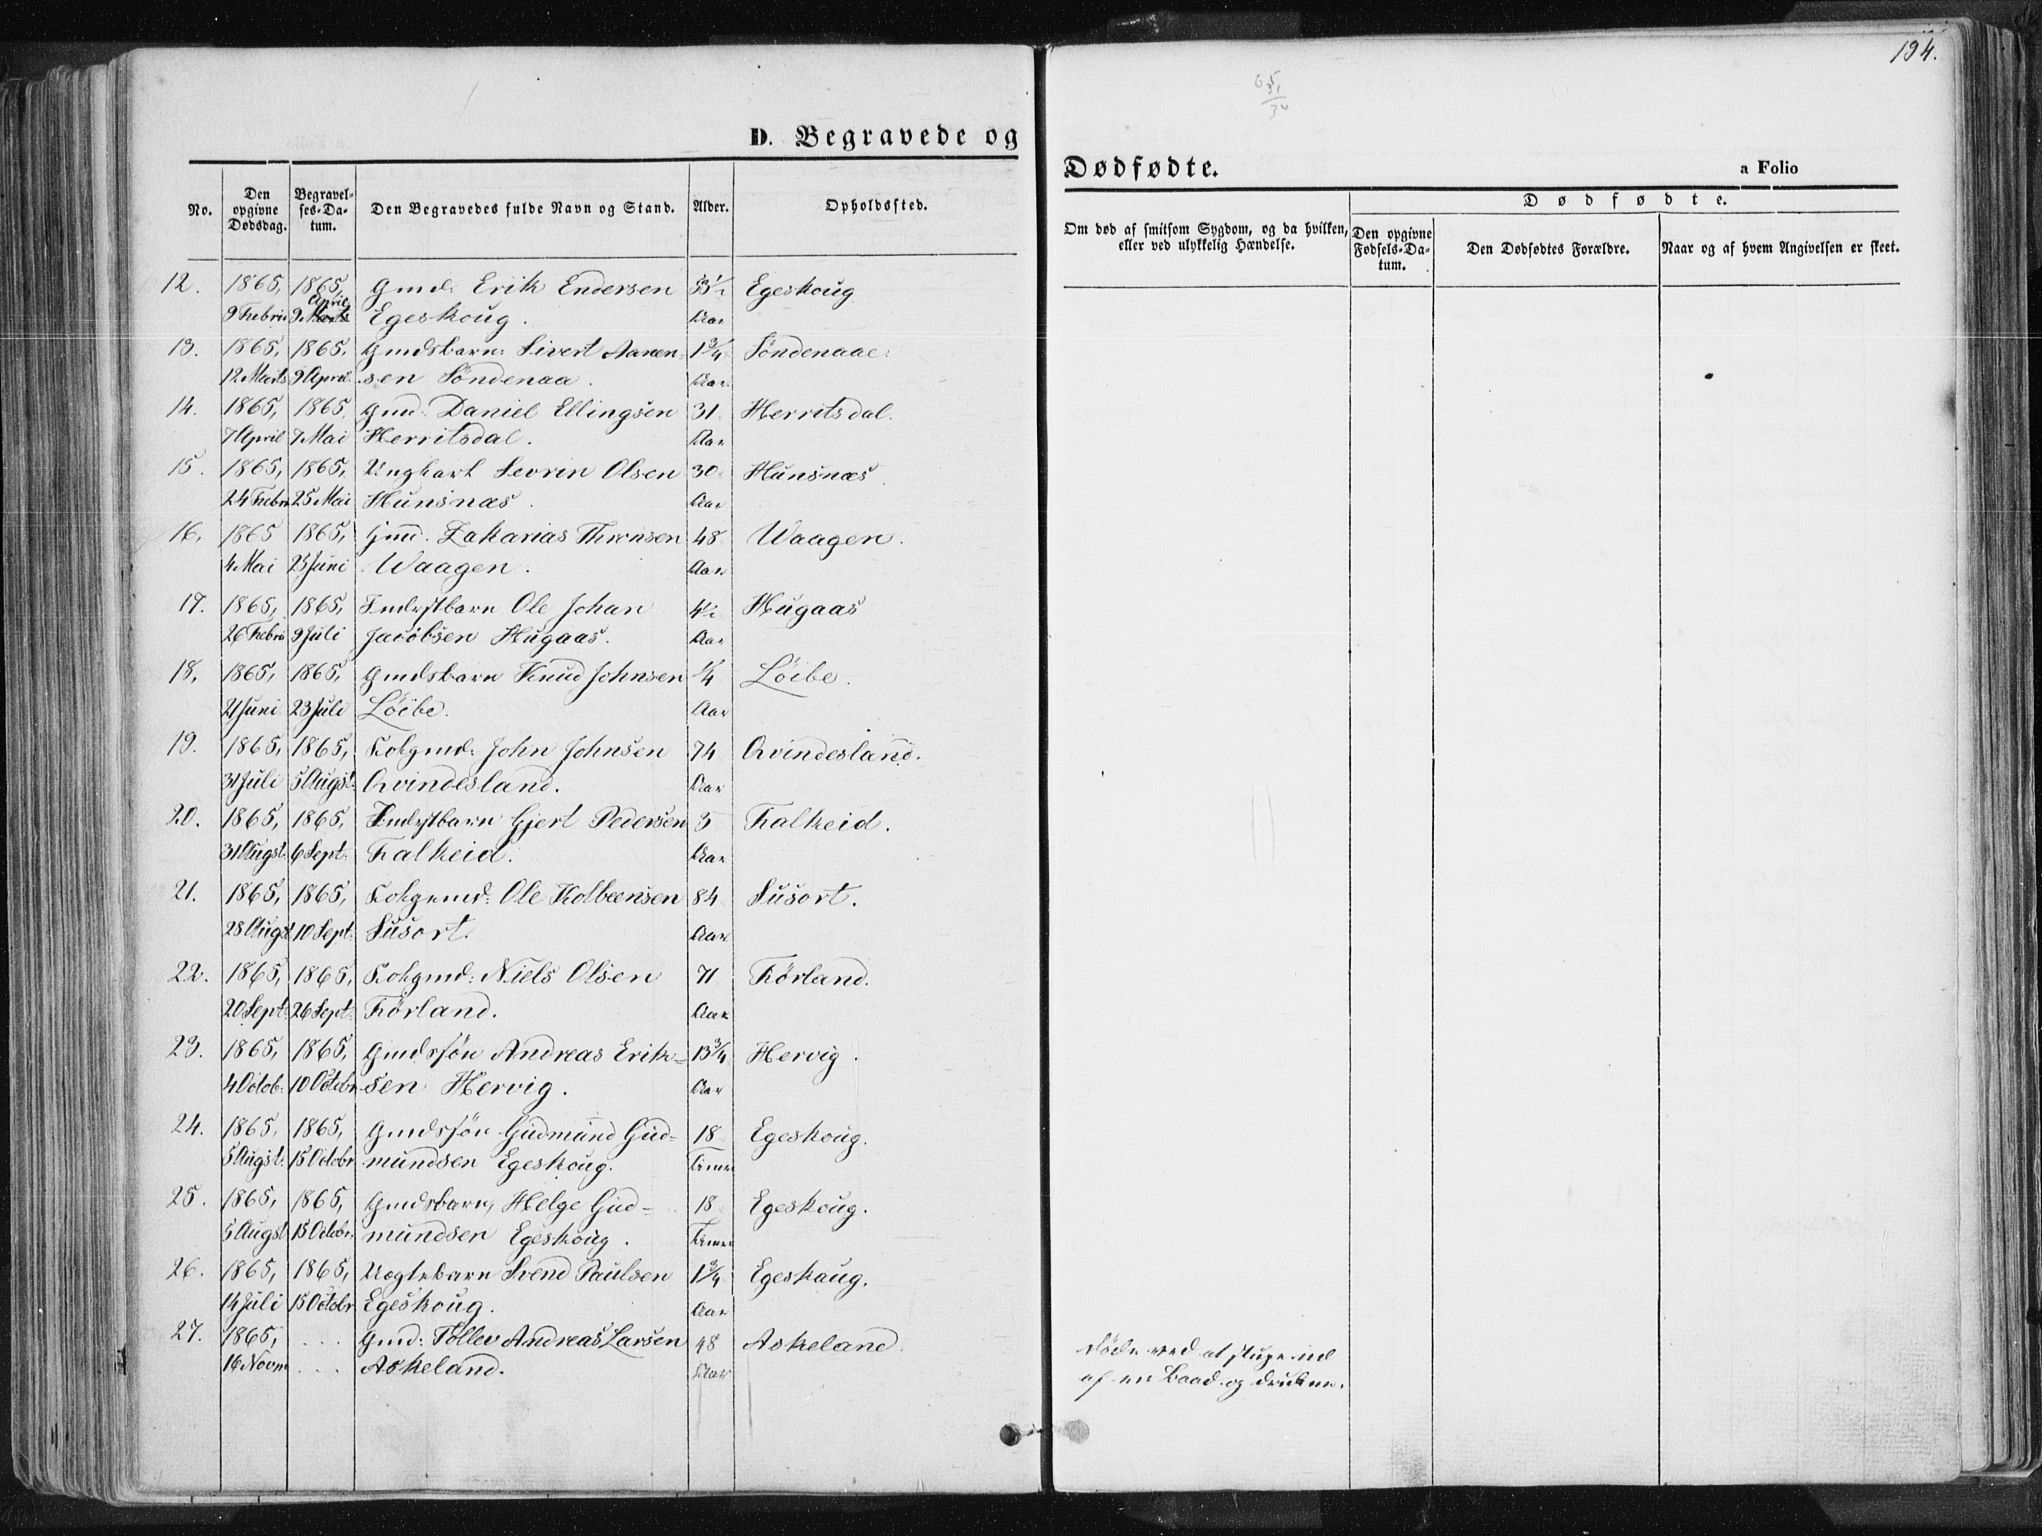 194.
D. Begravede og
Dødfødte.
a Folio
No.
Den opgivne Dødsdag.
Begravelses-Datum.
Den Begravedes fulde Navn og Stand.
Alder.
Opholdssted.
Om død af smitsom Sygdom, og da hvilken, eller ved ulykkelig Hændelse.
Dødfødte.
Den opgivne Fødsels-Datum.
Den Dødfødtes Forældre.
Naar og af hvem Angivelsen er skeet.
12. 1865, 1865, Gmd: Erik Endersen 33½ Egeskoug
9 Febru 9 April Egeskoug. Aar
13. 1865, 1865, Gmdsbarn: Sivert Aanen- 1¾ Søndenaae.
12 Marts 9 April sen Søndenaa. Aar
14. 1865, 1865, Gmd: Daniel Ellingsen 31 Herritsdal.
7 April 7 Mai Herritsdal. Aar
15. 1865, 1865, Ungkarl Sevrin Olsen 30 Hunsnæs.
24 Febru 25 Mai Hunsnæs. Aar
16. 1865 1865, Gmd. Zakarias Thronsen 48 Waagen.
4 Mai 25 Juni Waagen. Aar
17. 1865, 1865, Inderstbarn Ole Johan 4½ Hugaas
26 Febru 9 Juli Jacobsen Hugaas. Aar
18. 1865, 1865, Gmdsbarn Knud Johnsen ¼ Løibe.
21 Juni 23 Juli Løibe. Aar
19. 1865, 1865, Folgmd: John Johnsen 74 Qvindesland.
31 Juli 5 Augst: Qvindesland. Aar
20. 1865, 1865, Inderstbarn Gjert Pedersen 5 Falkeid.
31 Augst: 6 Sept: Falkeid. Aar
21. 1865, 1865, Folgemd: Ole Kolbeensen 84 Susort.
28 Augst 10 Sept: Susort. Aar
22. 1865, 1865, Folgmd: Niels Olsen 71 Førland.
20 Sept: 26 Sept: Førland. Aar
23. 1865, 1865, Gmdssøn Andreas Erik- 13¾ Hervig.
4 Octob: 10 Octobr sen Hervig. Aar
24. 1865, 1865, Gmdssøn Gudmund Gud- 18 Egeskoug.
5 Augst: 15 Octobr mundsen Egeskoug. Timer
25. 1865, 1865, Gmdsbarn, Helge Gud- 18 Egeskoug.
5 Augst 15 Octobr: mundsen Egeskoug. Timer
26. 1865, 1865, Uægtebarn Svend Paulsen 1¾ Egeskaug.
14 Juli 15 Octobr Egeskoug. Aar
27. 1865, ... Gmd: Tollev Andreas Larsen 48 Askeland.
16 Novm ... Askeland. Aar
døde ved at stupe ud
af en Baad og drukne.